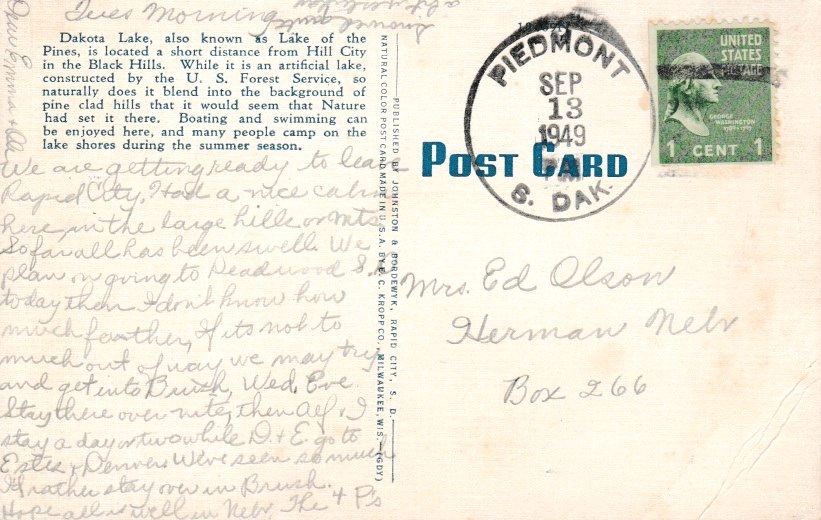 Tues Morning
Dear Emma &
Dakota Lake, also known as Lake of the
Pines, is located a short distance from Hill City
in the Black Hills. While it is an artificial lake,
constructed by the U. S. Forest Service, so
naturally does it blend into the background of
pine clad hills that it would seem that Nature
had set it there. Boating and swimming can
be enjoyed here, and many people camp on the
lake shores during the summer season.
We are getting ready to leave
Rapid City. Had a nice cabin
here in the large hills or mts.
So far all has been swell. We
plan on going to Deadwood S.
today then I don't know how
much farther, If its not to
much out of way we may try
and get into Brush, Wed, Eve.
Stay there over nite, then Alf & I
stay a day or two while D. & E. go to
Estes & Denver. We've seen so much
I'd rather stay over in Brush.
Hope all is well in Nebr. The 4 P's
PUBLISHED BY JOHNSTON & BORDEWYK, RAPID CITY, S. D.
NATURAL COLOR POST CARD MADE IN U. S. A. BY E. C. KROPP CO., MILWAUKEE, WIS.—(GDY)
PIEDMONT
SEP
13
1949
S. DAK.
UNITED
STATES
POSTAGE
GEORGE
WASHINGTON
1 CENT 1
POST CARD
Mrs. Ed Olson
Herman Nebr
Box 266